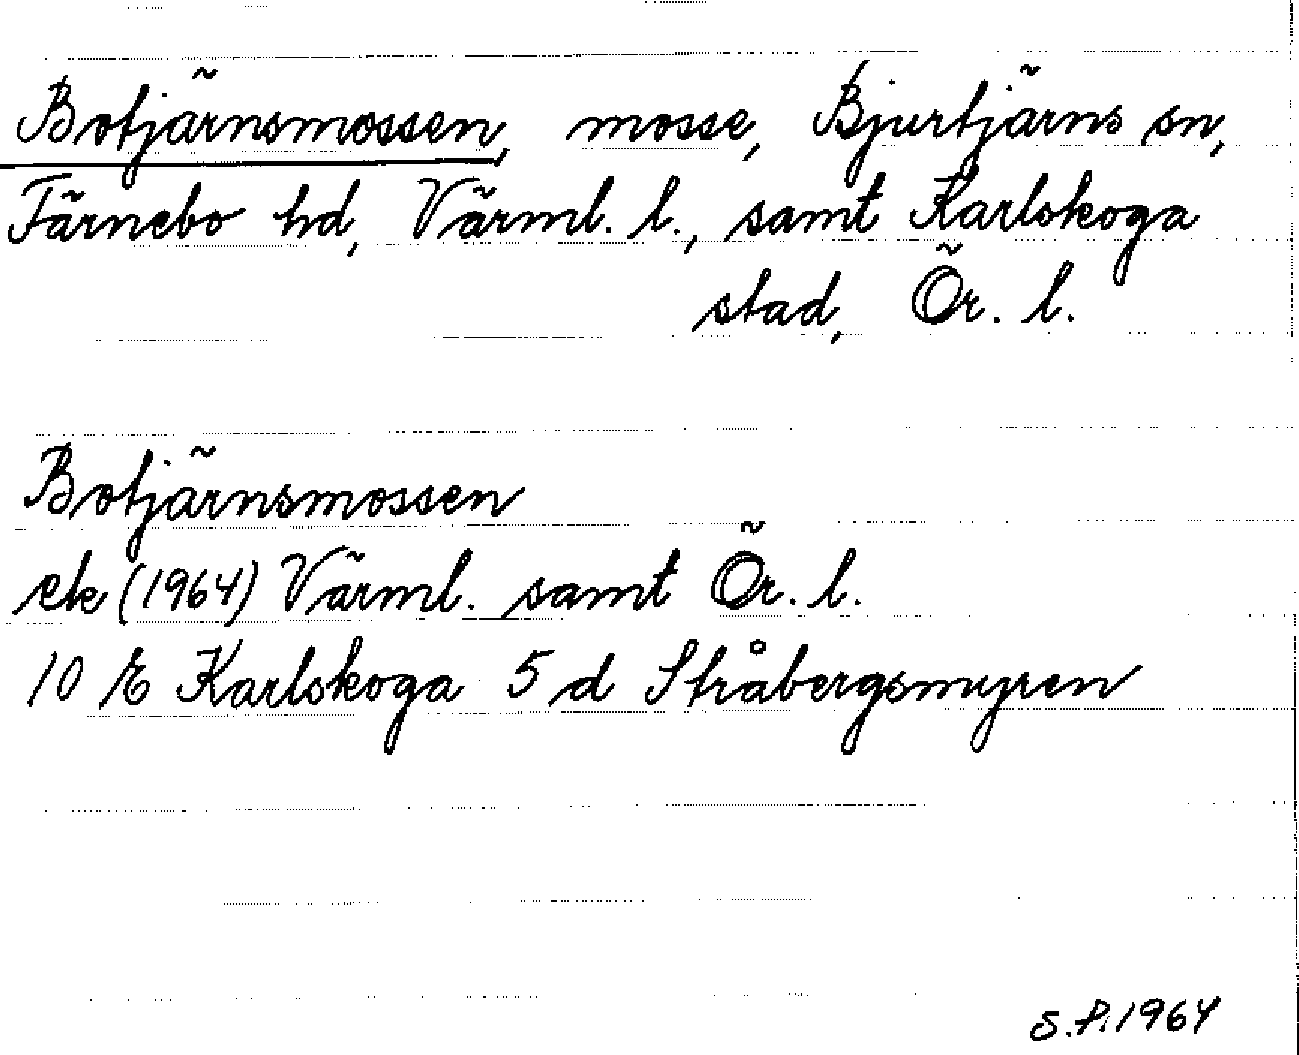 Botjärnsmossen, mosse, Bjurtjärns sn,
Färnebo hd, Värml. l., samt Karlskoga
stad, Ör. l.
Botjärnsmossen
ek (1964) Värml. samt Ör. l.
10 E Karlskoga 5 d Stråbergsmyren
S.P. 1964